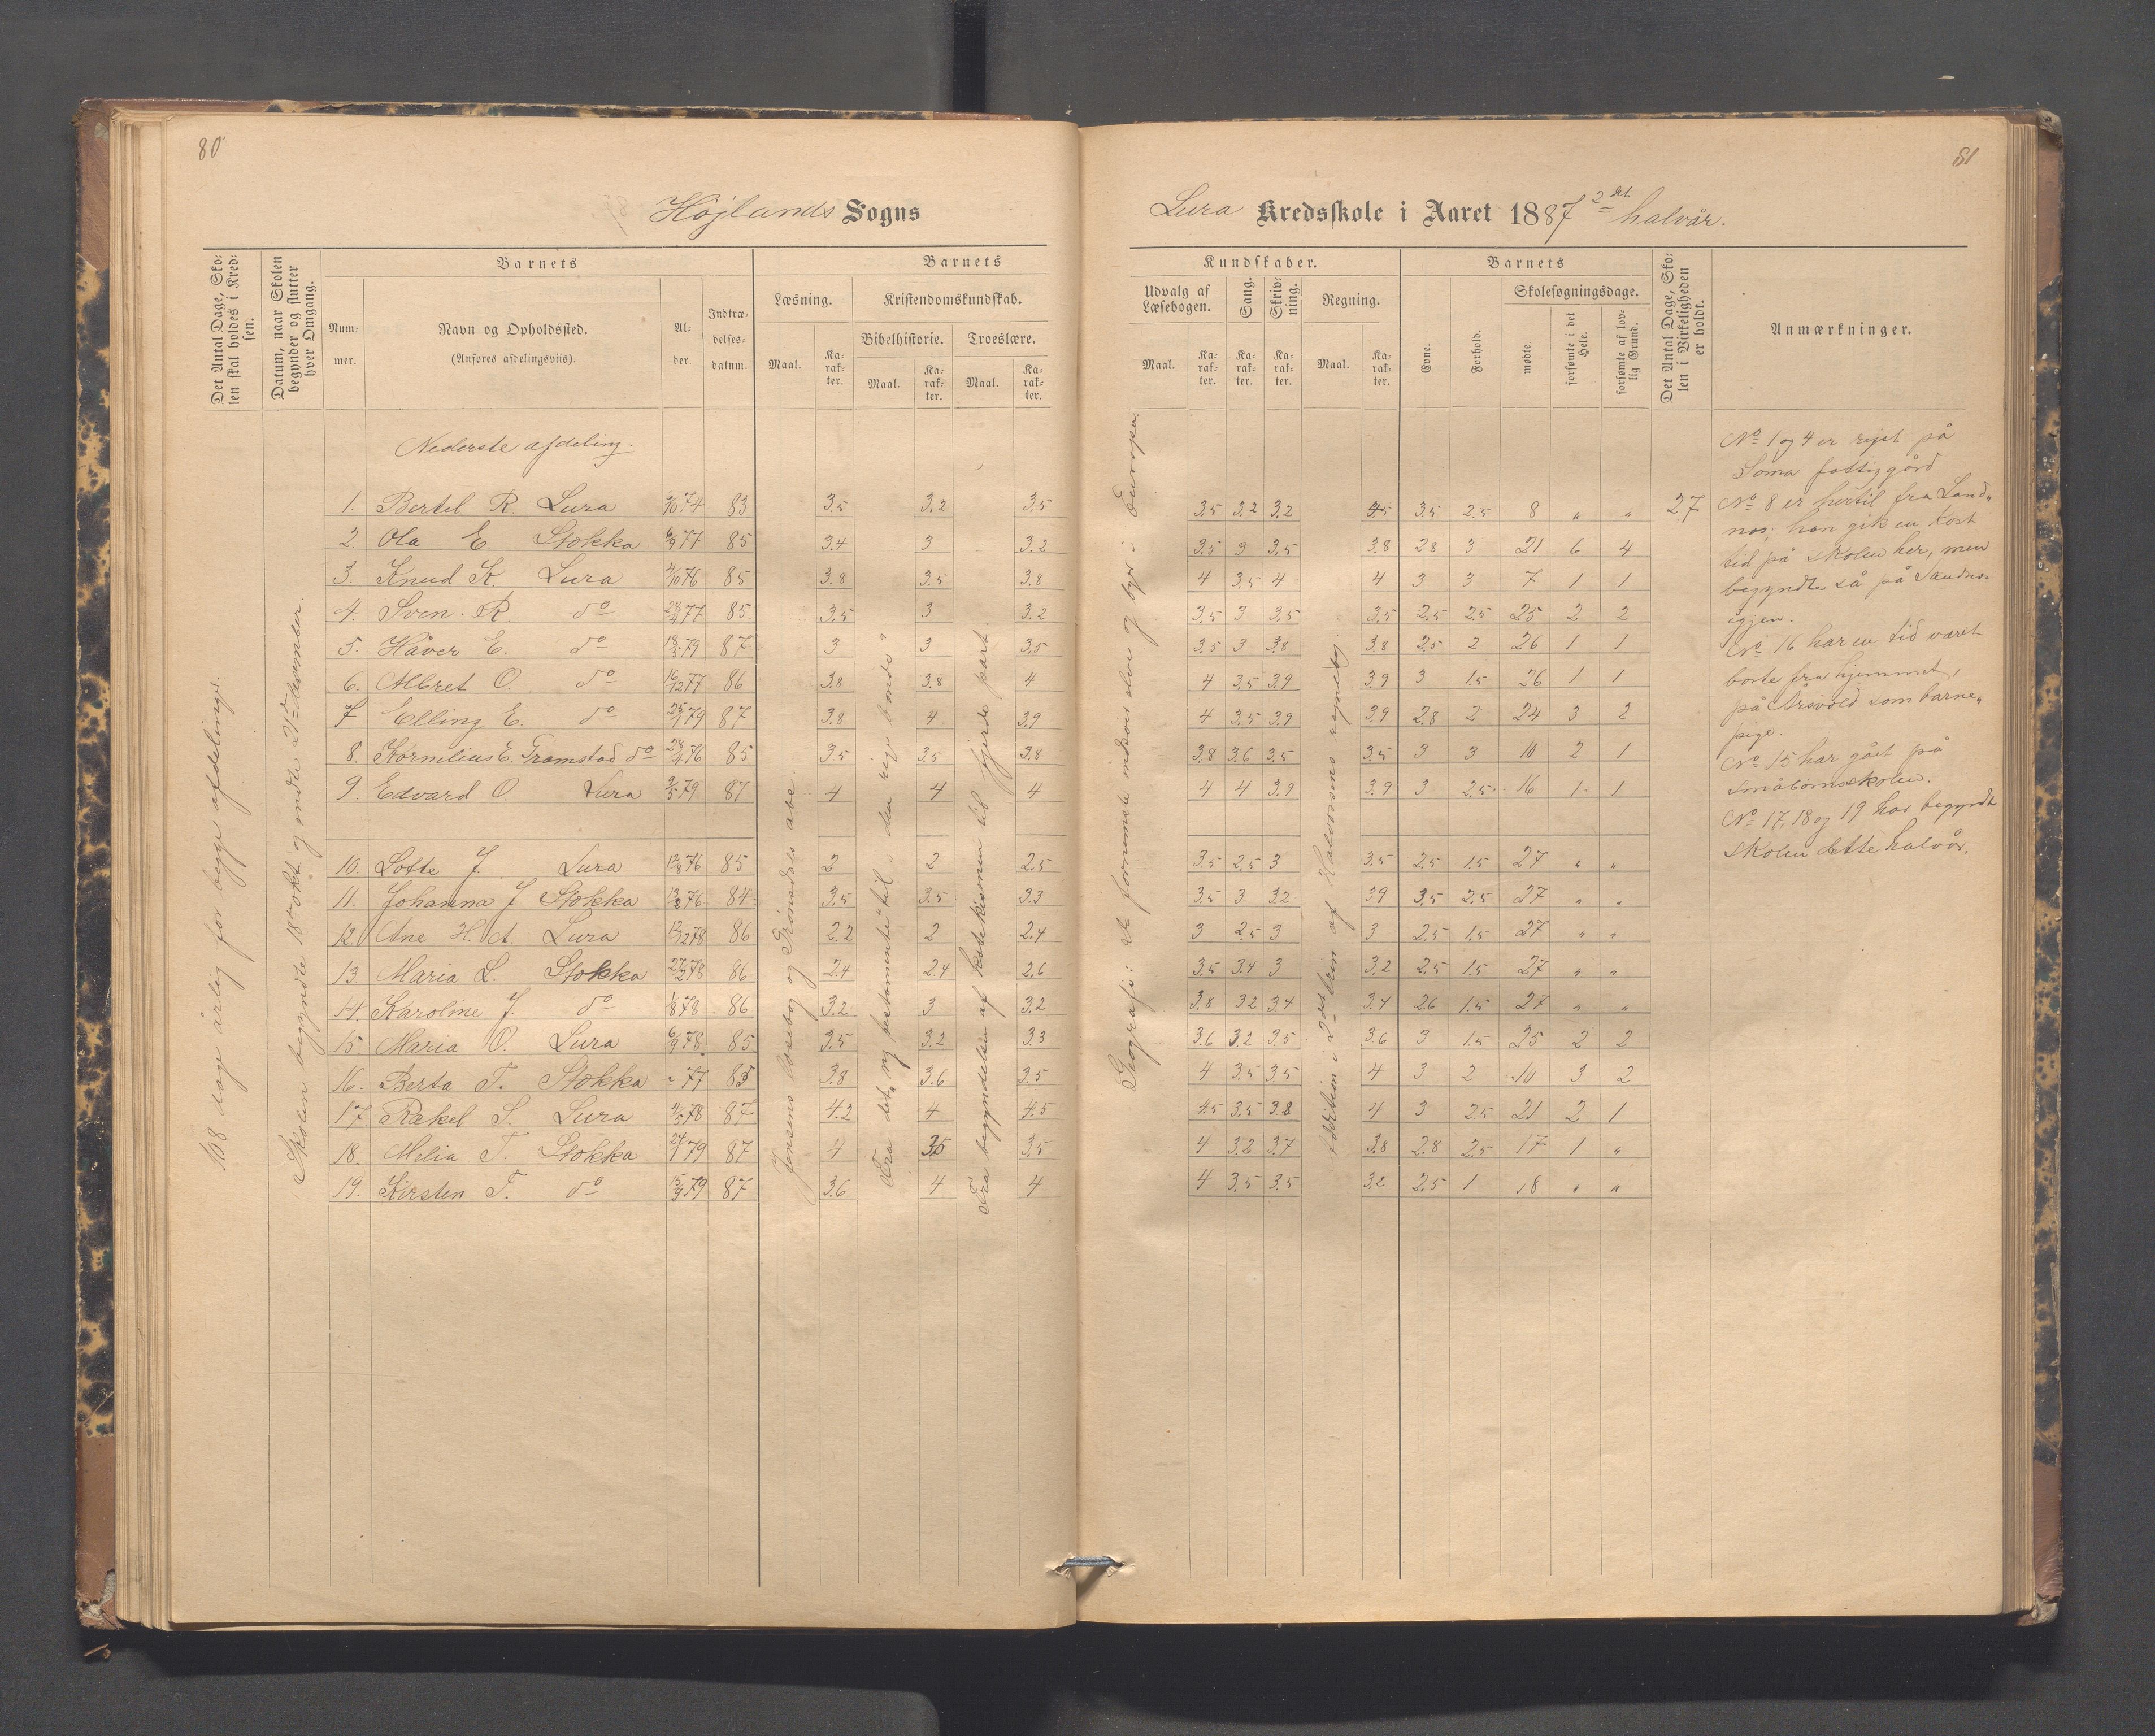 80
Højlands Sogns
Det Antal Dage, Sko-
len skal holdes i Kred-
sen.
Datum, naar Skolen
begynder og slutter
hver Omgang.
Barnets
Num-
mer.
Navn og Opholdssted.
(Anføres afdelingsviis).
Al-
der.
Indtræ-
delses-
datum.
Barnets
Læsning.
Maal.
Ka-
rak-
ter.
Kristendomskundskab.
Bibelhistorie.
Maal.
Ka-
rak-
ter.
Troeslære.
Maal.
Ka-
rak-
ter.
108 dage årlig for begge afdelinger.
Skolen begyndte 18de okt. og endte 21de desember.
Jensens læsebog og Grønsdals abc.
Fra det „ny testamente" til „den rige bonde"
Fra begyndelsen af katekismen til fjerde part.
Nederste afdeling.
1. Bertel R. Lura 74 83 3.5 3.2 3.5
2 Ola E. Stokka 6/9 77 85 3.4 3 3.2
3. Knud K. Lura 4/10 76 85 3.8 3.5 3.8
4. Sven R. do 28/4 77 85 3.5 3 3.2
5. Håver E. do 18/5 79 87 3 3 3.5
6. Albret O. do 16/12 77 86 3.8 3.8 4
7 Elling E. do 25/1 79 87 3.8 4 3.9
8. Kornelius E. Tramstad do 28/4 76 85 3.5 3.5 3.8
9. Edvard O. Lura 2/5 79 87 4 4 4
10. Lotte J. Lura 12/8 76 85 2 2 2.5
11. Johanna J Stokka 13/2 76 84 3.5 3.5 3.3
12. Ane H. A. Lura 12/12 78 86 2.2 2 2.4
13 Maria L. Stokka 27/2 78 86 2.4 2.4 2.6
14. Karoline J. do 1/8 78 86 3.2 3 3.2
15. Maria O. Lura 6/9 78 85 3.5 3.2 3.3
16. Berta T. Stokka 77 85 3.8 3.6 3.5
17 Rakel S. Lura 4/5 78 87 4.2 4 4.5
18. Melia T. Stokka 24/1 79 87 4 3.5 3.5
19. Kirsten T. do 15/9 79 87 3.6 4 4
81
Lura Kredsskole i Aaret 1887 2det halvår.
Kundskaber.
Udvalg af
Læsebogen.
Maal.
Ka-
rak-
ter.
Sang.
Ka-
rak-
ter.
Skriv-
ning.
Ka-
rak-
ter.
Regning.
Maal.
Ka-
rak-
ter.
Barnets
Evne.
Forhold.
Skolesøgningsdage.
mødte.
forsømte i det
Hele.
forsømte af lov-
lig Grund.
Det Antal Dage, Sko-
len i Virkeligheden
er holdt.
Anmærkninger.
Geografi: de fornemste indsøer elve og byer i Europa.
Addition i 2det trin af Halvorsens regnebog.
3.5 3.2 3.2 4.5 3.5 2.5 8 „ „ 27
3.5 3 3.5 3.8 2.8 3 21 6 4
4 3.5 4 4 3 3 7 1 1
3.5 3 3.5 3.5 2.5 2.5 25 2 2
3.5 3 3.8 3.8 2.5 2 26 1 1
4 3.5 3.9 3.9 3 1.5 26 1 1
4 3.5 3.9 3.9 2.8 2 24 3 2
3.8 3.6 3.5 3.5 3 3 10 2 1
4 4 3.9 3.9 3 2.5 16 1 1
3.5 2.5 3 3.5 2.5 1.5 27 „ „
3.5 3 3.2 3.9 3.5 2.5 27 „ „
3 2.5 3 3 2.5 1.5 27 „ „
3.5 3.4 3 3.2 2.5 1.5 27 „ „
3.8 3.2 3.4 3.4 2.6 1.5 27 „ „
3.6 3.2 3.5 3.6 3 1.5 25 2 2
4 3.5 3.5 4 3 2 10 3 2
4.5 3.5 3.8 4 3 2.5 21 2 1
4 3.2 3.7 3.8 2.8 2.5 17 1 „
4 3.5 3.5 3.2 2.5 1 18 „ „
No 1 og 4 er rejst på
Soma fattiggård
No 8 er hertil fra Sand„
nes; han gik en kort
tid på skolen her, men
begyndte så på Sandnes
igjen.
No 16 har en tid været
borte fra hjemmet,
på Årsvold som barne„
pige.
No 15 har gået på
Småbørnskolen.
No 17, 18 og 19 har begyndt
skolen dette halvår.